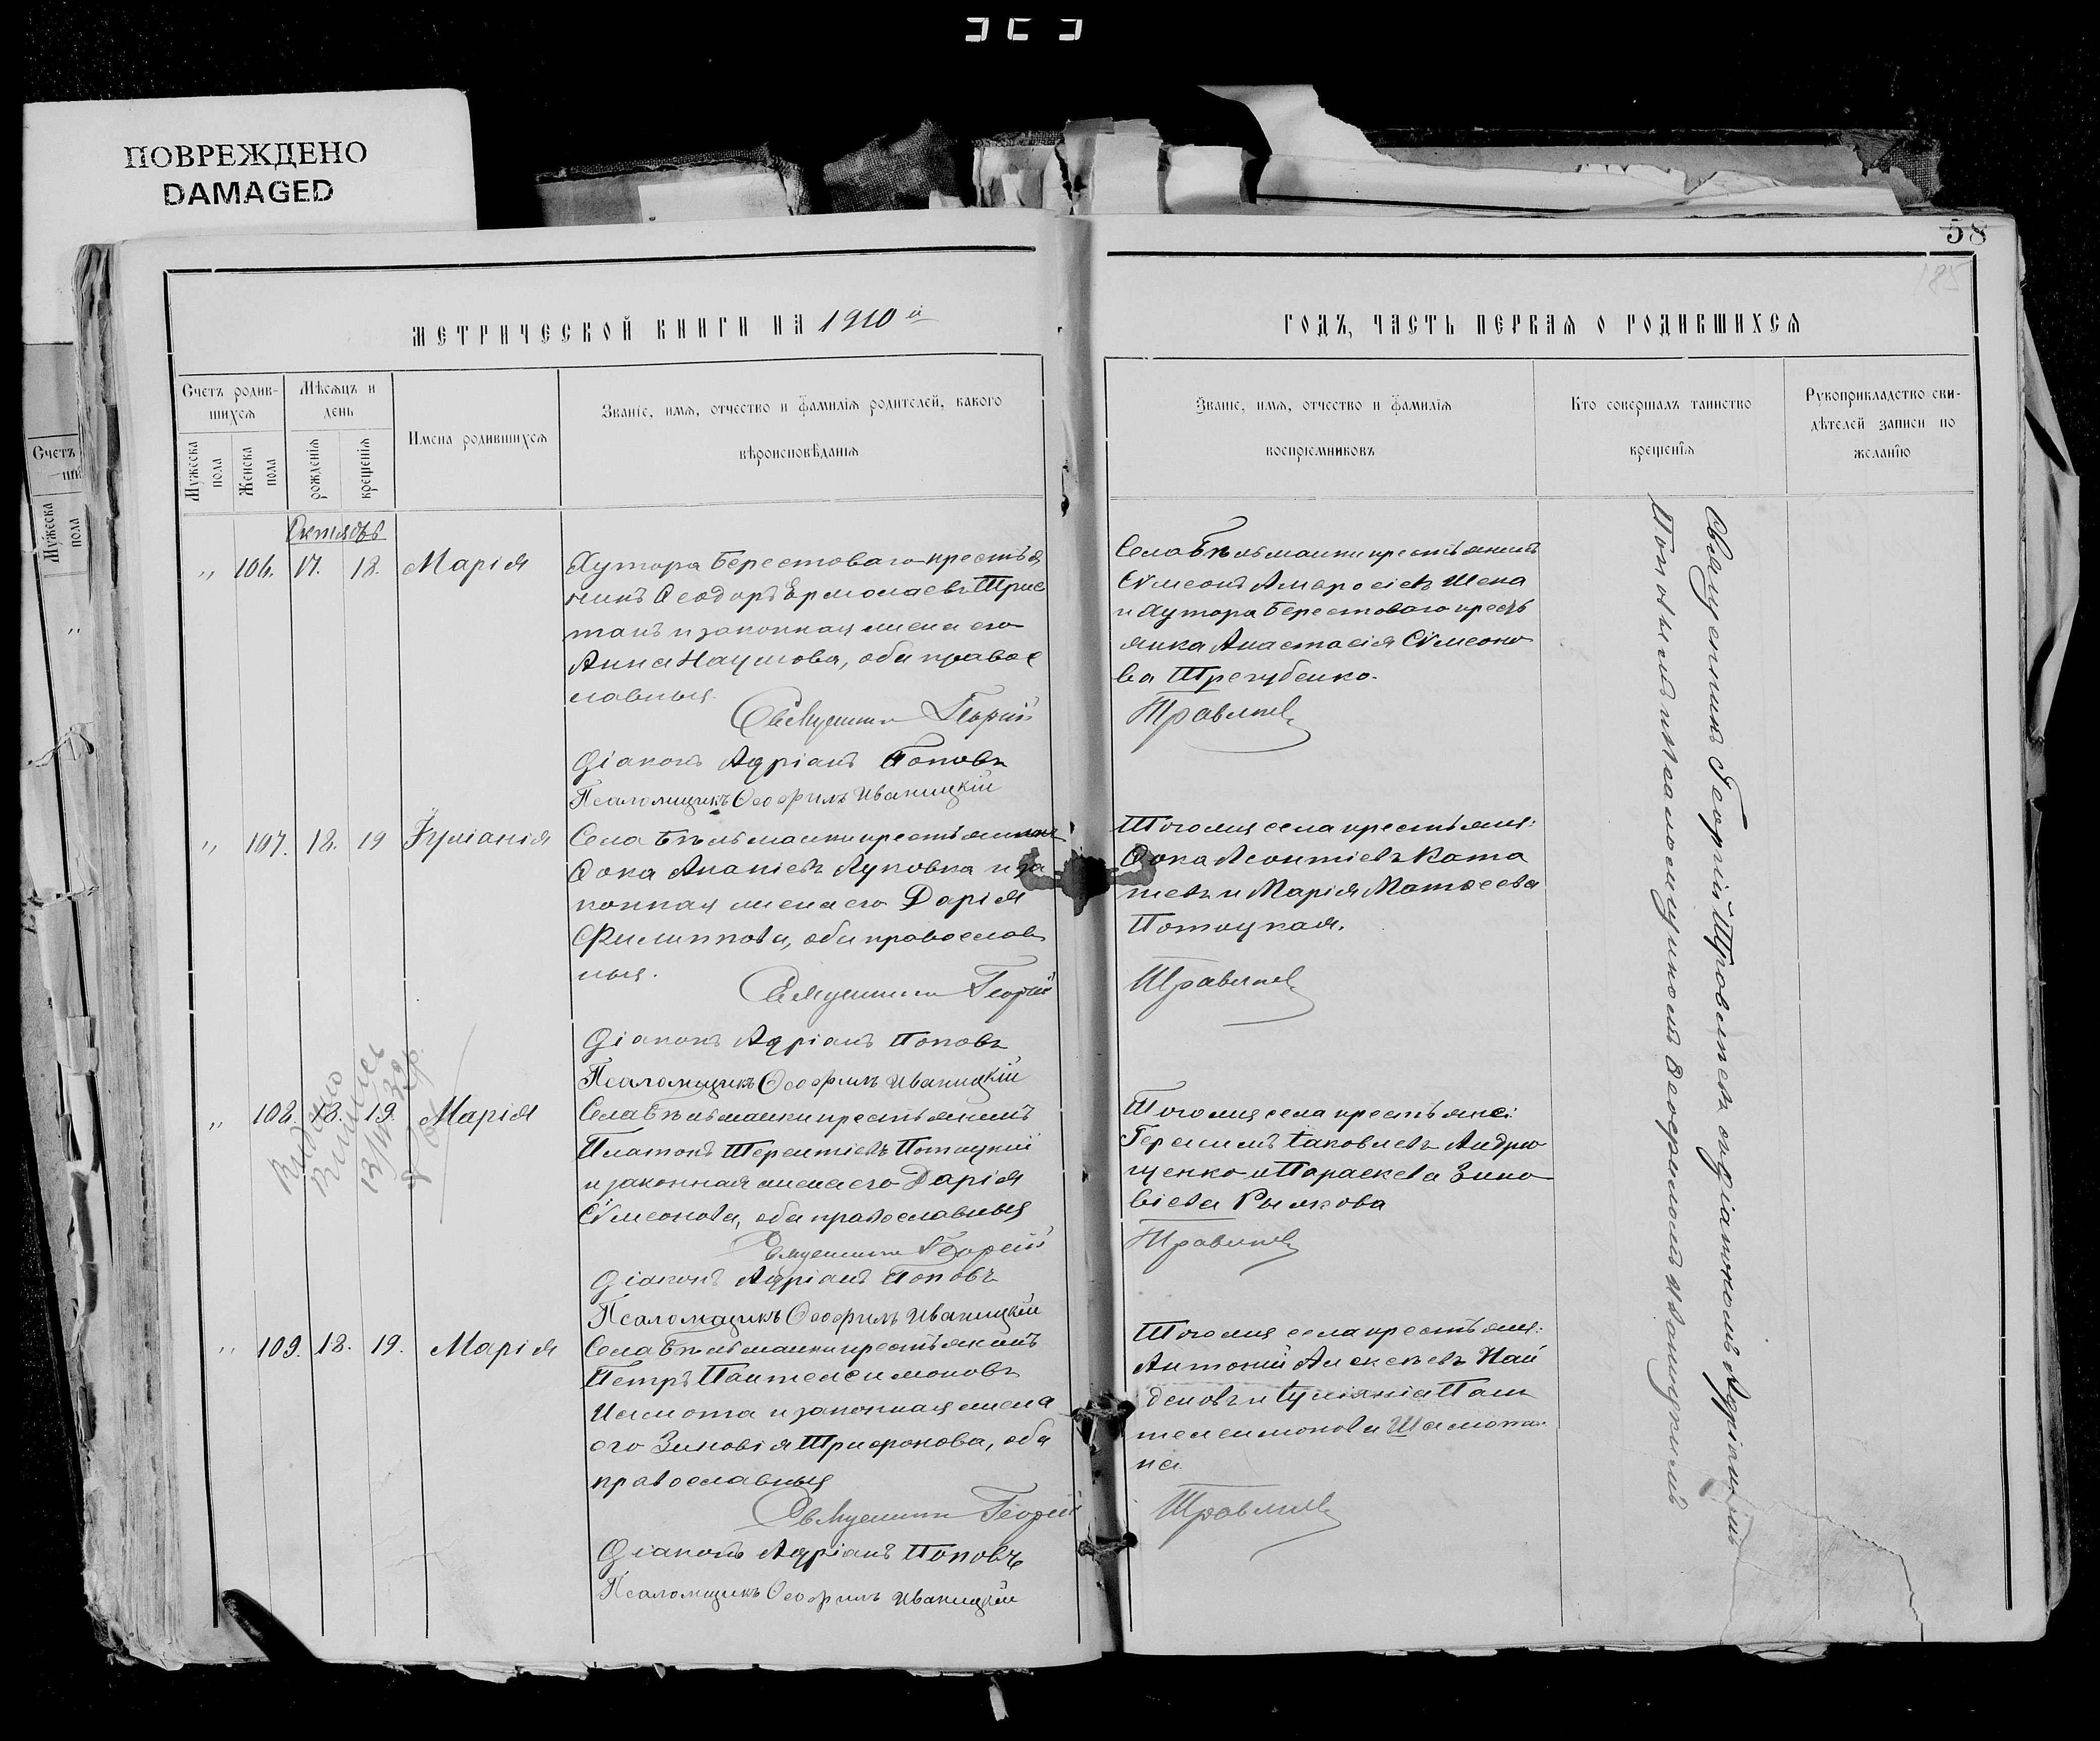 ПОВРЕЖДЕНО
DAMAGED
58
185
МЕТРИЧЕСКОЙ КНИГИ НА 1910 й
ГОДЪ, ЧАСТЬ ПЕРВАЯ О РОДИВШИХСЯ
Счетъ родив-
шихся
Мужеска пола
Женска пола
Мѣсяцъ и
день
рожденія
крещенія
Имена родившихся
Званіе, имя, отчество и фамилія родителей, какого
вѣроисповѣданія
Званіе, имя, отчество и фамилія
воспріемниковъ
Кто совершалъ таинство
крещенія
Рукоприкладство сви-
дѣтелей записи по
желанію
Счетъ
Мужеска
пола
Октябрь
" 106. 17. 18. Марія
Хутора Берестоваго крестья
нинъ Ѳеодоръ Ермолаевъ Трис
танъ и законная жена его
Анна Наумова, оба правос
лавныя.
Священникъ Георгій
Діаконъ Адріанъ Поповъ
Псаломщикъ Ѳеофилъ Иваницкій
Села Бѣльманки крестьянинъ
Сѵмеонъ Амвросіевъ Шека
и хутора Берестоваго кресть
янка Анастасія Сѵмеоно
ва Трегубенко.
Травлѣевъ
" 107. 18. 19 Іуліанія
Села Бѣльманки крестьянинъ
Ѳока Ананіевъ Луковка и за
конная жена его Дарія
Филиппова, оба православ
ныя.
Священникъ Георгій
Діаконъ Адріанъ Поповъ
Псаломщикъ Ѳеофилъ Иваницкій
Тогожъ села крестьяне:
Ѳока Леонтіевъ
и Марія Матѳеева
Потоцкая.
" 108. 18. 19. Марія
Села Бѣльманки крестьянинъ
Платонъ Терентіевъ Потоцкій
и законная жена его Дарія
Сѵмеонова, оба православныя
Священникъ Георгій
Діаконъ Адріанъ Поповъ
Псаломщикъ Ѳеофилъ Иваницкій
Тогожъ села крестьяне:
Герасимъ Іаковлевъ Андрю
щенко и Параскева Зино
віева Рыжкова
" 109. 18. 19. Марія
Села Бѣльманки крестьянинъ
Петръ Пантелеимоновъ
Шамота и законная жена
его Зиновія Трифонова, оба
православныя
Священникъ Георгій
Діаконъ Адріанъ Поповъ
Псаломщикъ Ѳеофилъ Иваницкій
Тогожъ села крестьяне:
Антоній Алексѣевъ Най
деновъ и Іуліанія Пан
телеимонова Шамоти
на
Священникъ Георгій съ діакономъ Адріаномъ
Поповымъ и псаломщикомъ Ѳеофиломъ Иваницкимъ